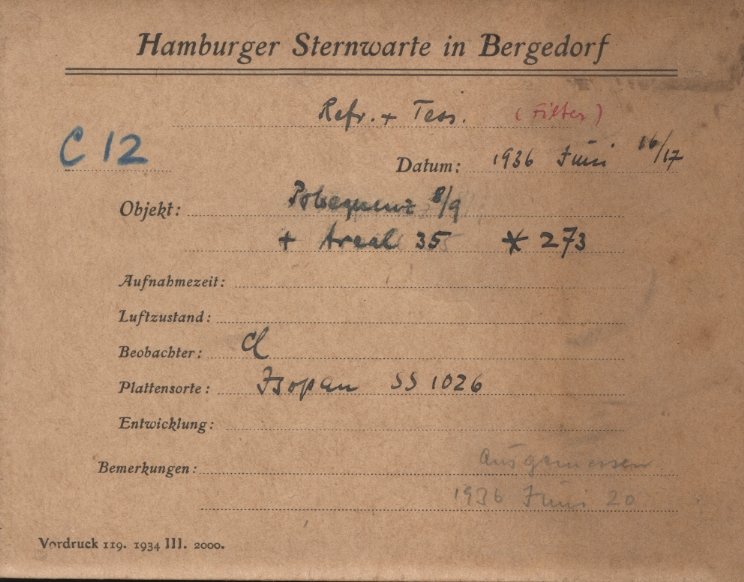 Hamburger Sternwarte in Bergedorf
Refr. + Tess. (Filter)
C 12
Datum: 1936 Juni 16/17
Objekt: Polsequenz 8/9
+ Areal 35 * 273
Aufnahmezeit:
Luftzustand:
Beobachter:
Plattensorte: Isopan SS 1026
Entwicklung:
Bemerkungen: Ausgemessen
1936 Juni 20
Vordruck 119. 1934 III. 2000.